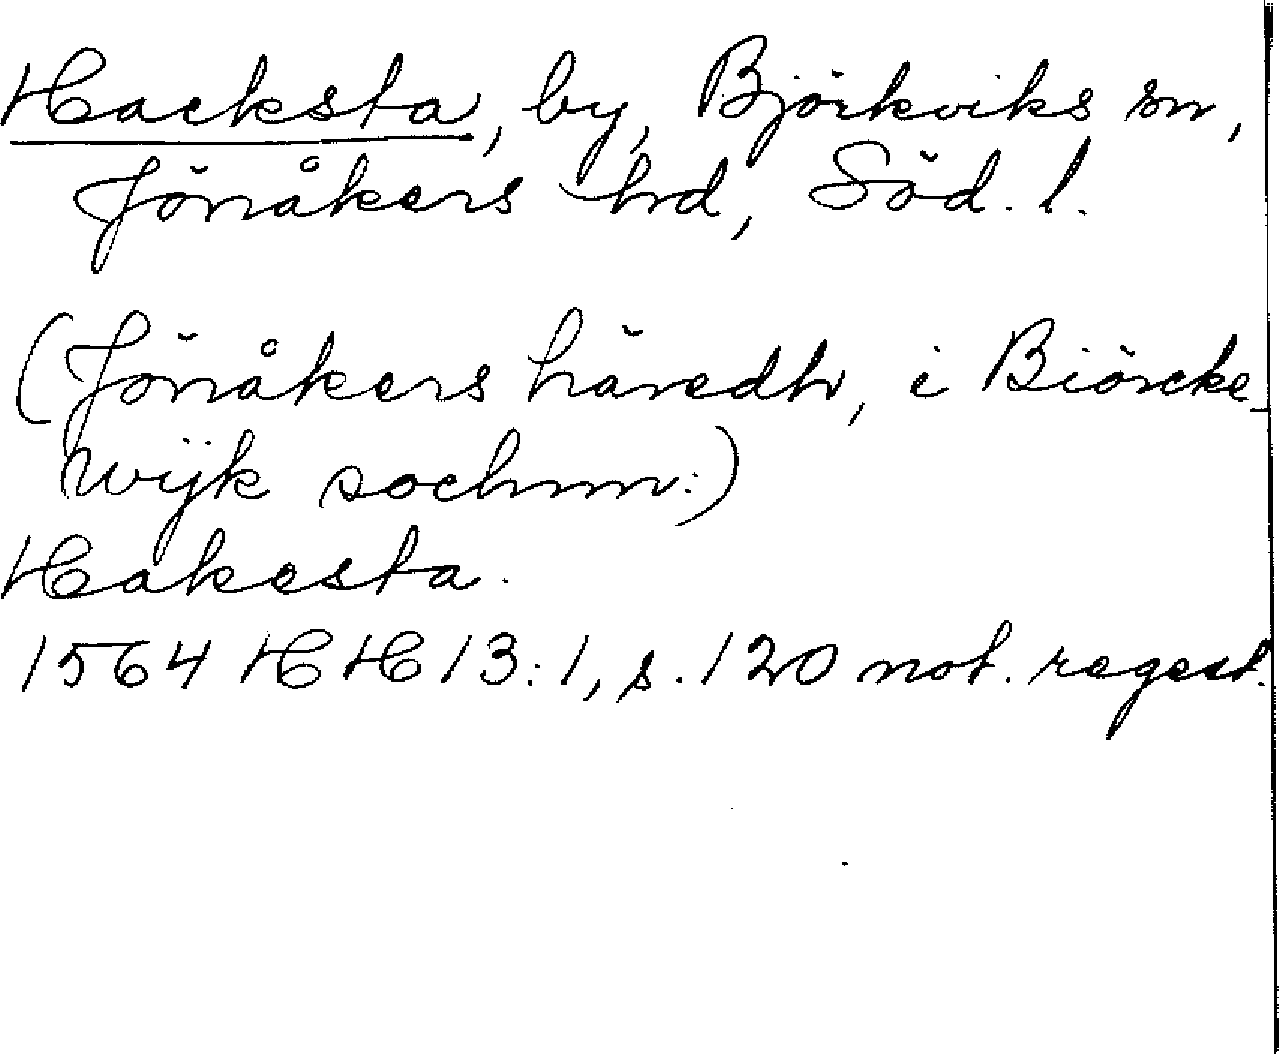 Hacksta, by, Björkviks sn,
Jönåkers hrd, Söd. l.
(Jönåkers häredh, i Biörcke-
wijk sochnn:)
Hakesta.
1564 HH 13:1, s. 120 not. regest.